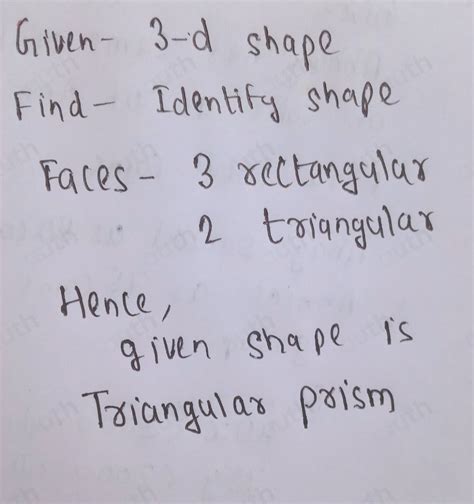 Given- 3-d shape
Find- Identify shape
Faces- 3 rectangular
2 triangular
Hence,
given shape is
Triangular prism